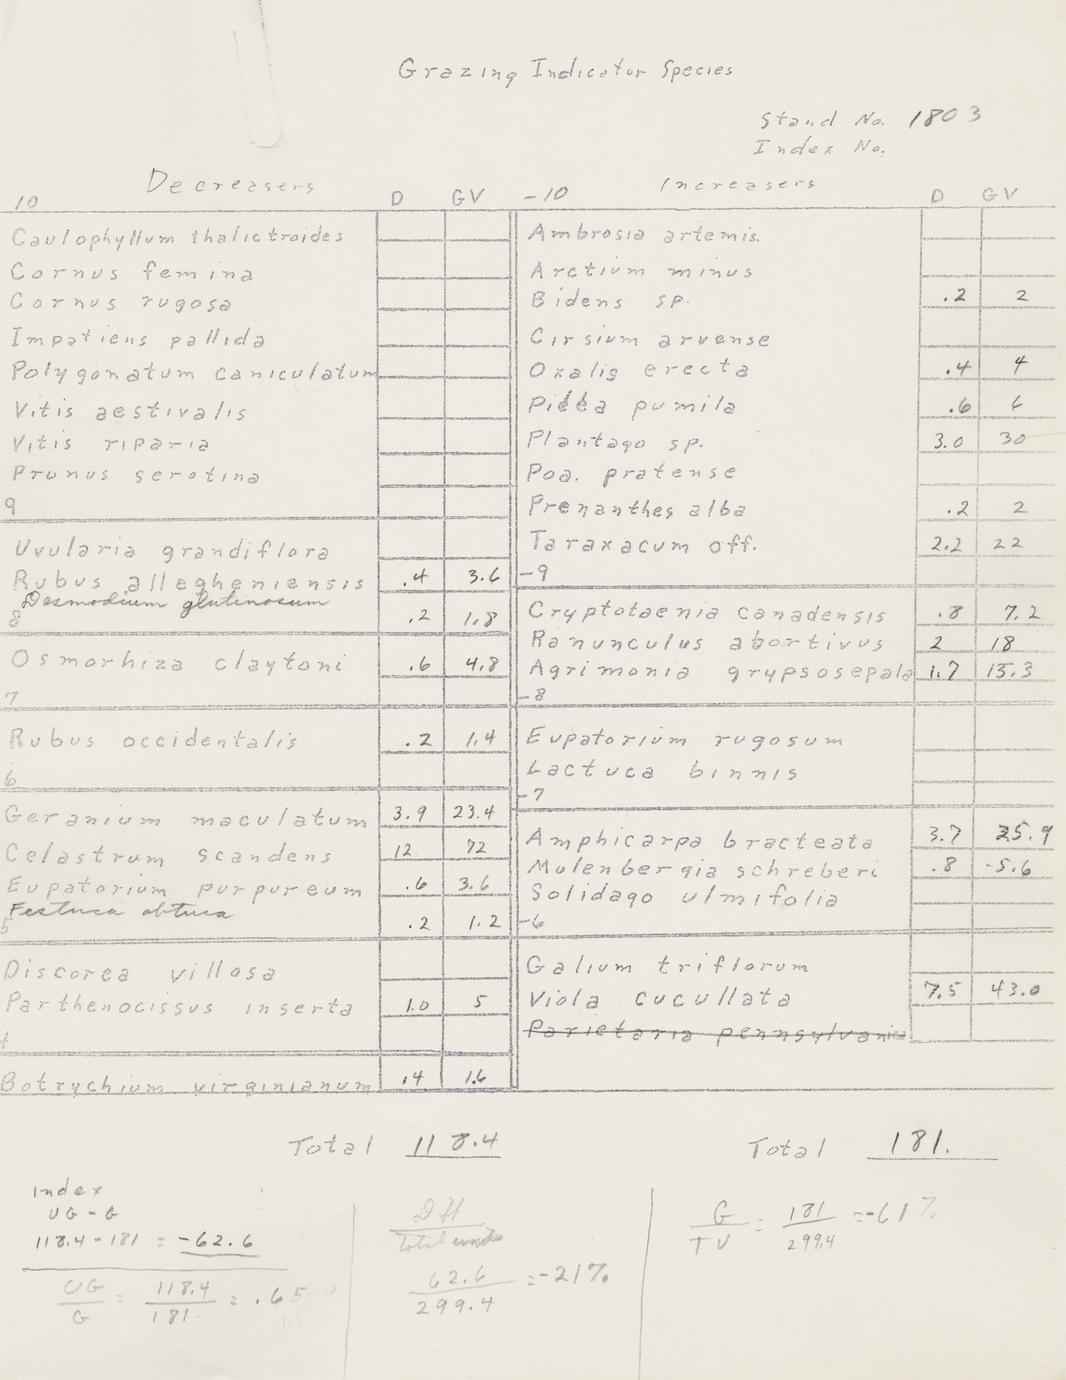 Grazing Indicator Species
Stand No. 1803
Index No.
Decreasers
10 D GV
Caulophyllum thalictroides
Cornus femina
Cornus rugosa
Impatiens pallida
Polygonatum caniculatum
Vitis aestivalis
Vitis riparia
Prunus serotina
9
Uvularia grandiflora
Rubus allegheniensis .4 3.6
Desmodium glutinosum .2 1.8
8
Osmorhiza claytoni .6 4.8
7
Rubus occidentalis .2 1.4
6
Geranium maculatum 3.9 23.4
Celastrum scandens 12 72
Eupatorium purpureum .6 3.6
Festuca obtusa .2 1.2
5
Discorea villosa
Parthenocissus inserta 1.0 5
4
Botrychium virginianum .4 1.6
Total 118.4
Increasers
-10 D GV
Ambrosia artemis.
Arctium minus
Bidens sp. .2 2
Cirsium arvense
Oxalis erecta .4 4
Pilea pumila .6 6
Plantago sp. 3.0 30
Poa. pratense
Prenanthes alba .2 2
Taraxacum off. 2.2 22
-9
Cryptotaenia canadensis .8 7.2
Ranunculus abortivus 2 18
Agrimonia grypsosepala 1.7 15.3
-8
Eupatorium rugosum
Lactuca binnis
-7
Amphicarpa bracteata 3.7 25.9
Mulenbergia schreberi .8 -5.6
Solidago ulmifolia
-6
Galium triflorum
Viola cucullata 7.5 43.0
Parietaria pennsylvanica
Total 181.
Index
UG - G
118.4 - 181 = -62.6
UG / G = 118.4 / 181. = .65
Diff / total units
62.6 / 299.4 = -21%
G / TU = 181 / 299.4 = -61%